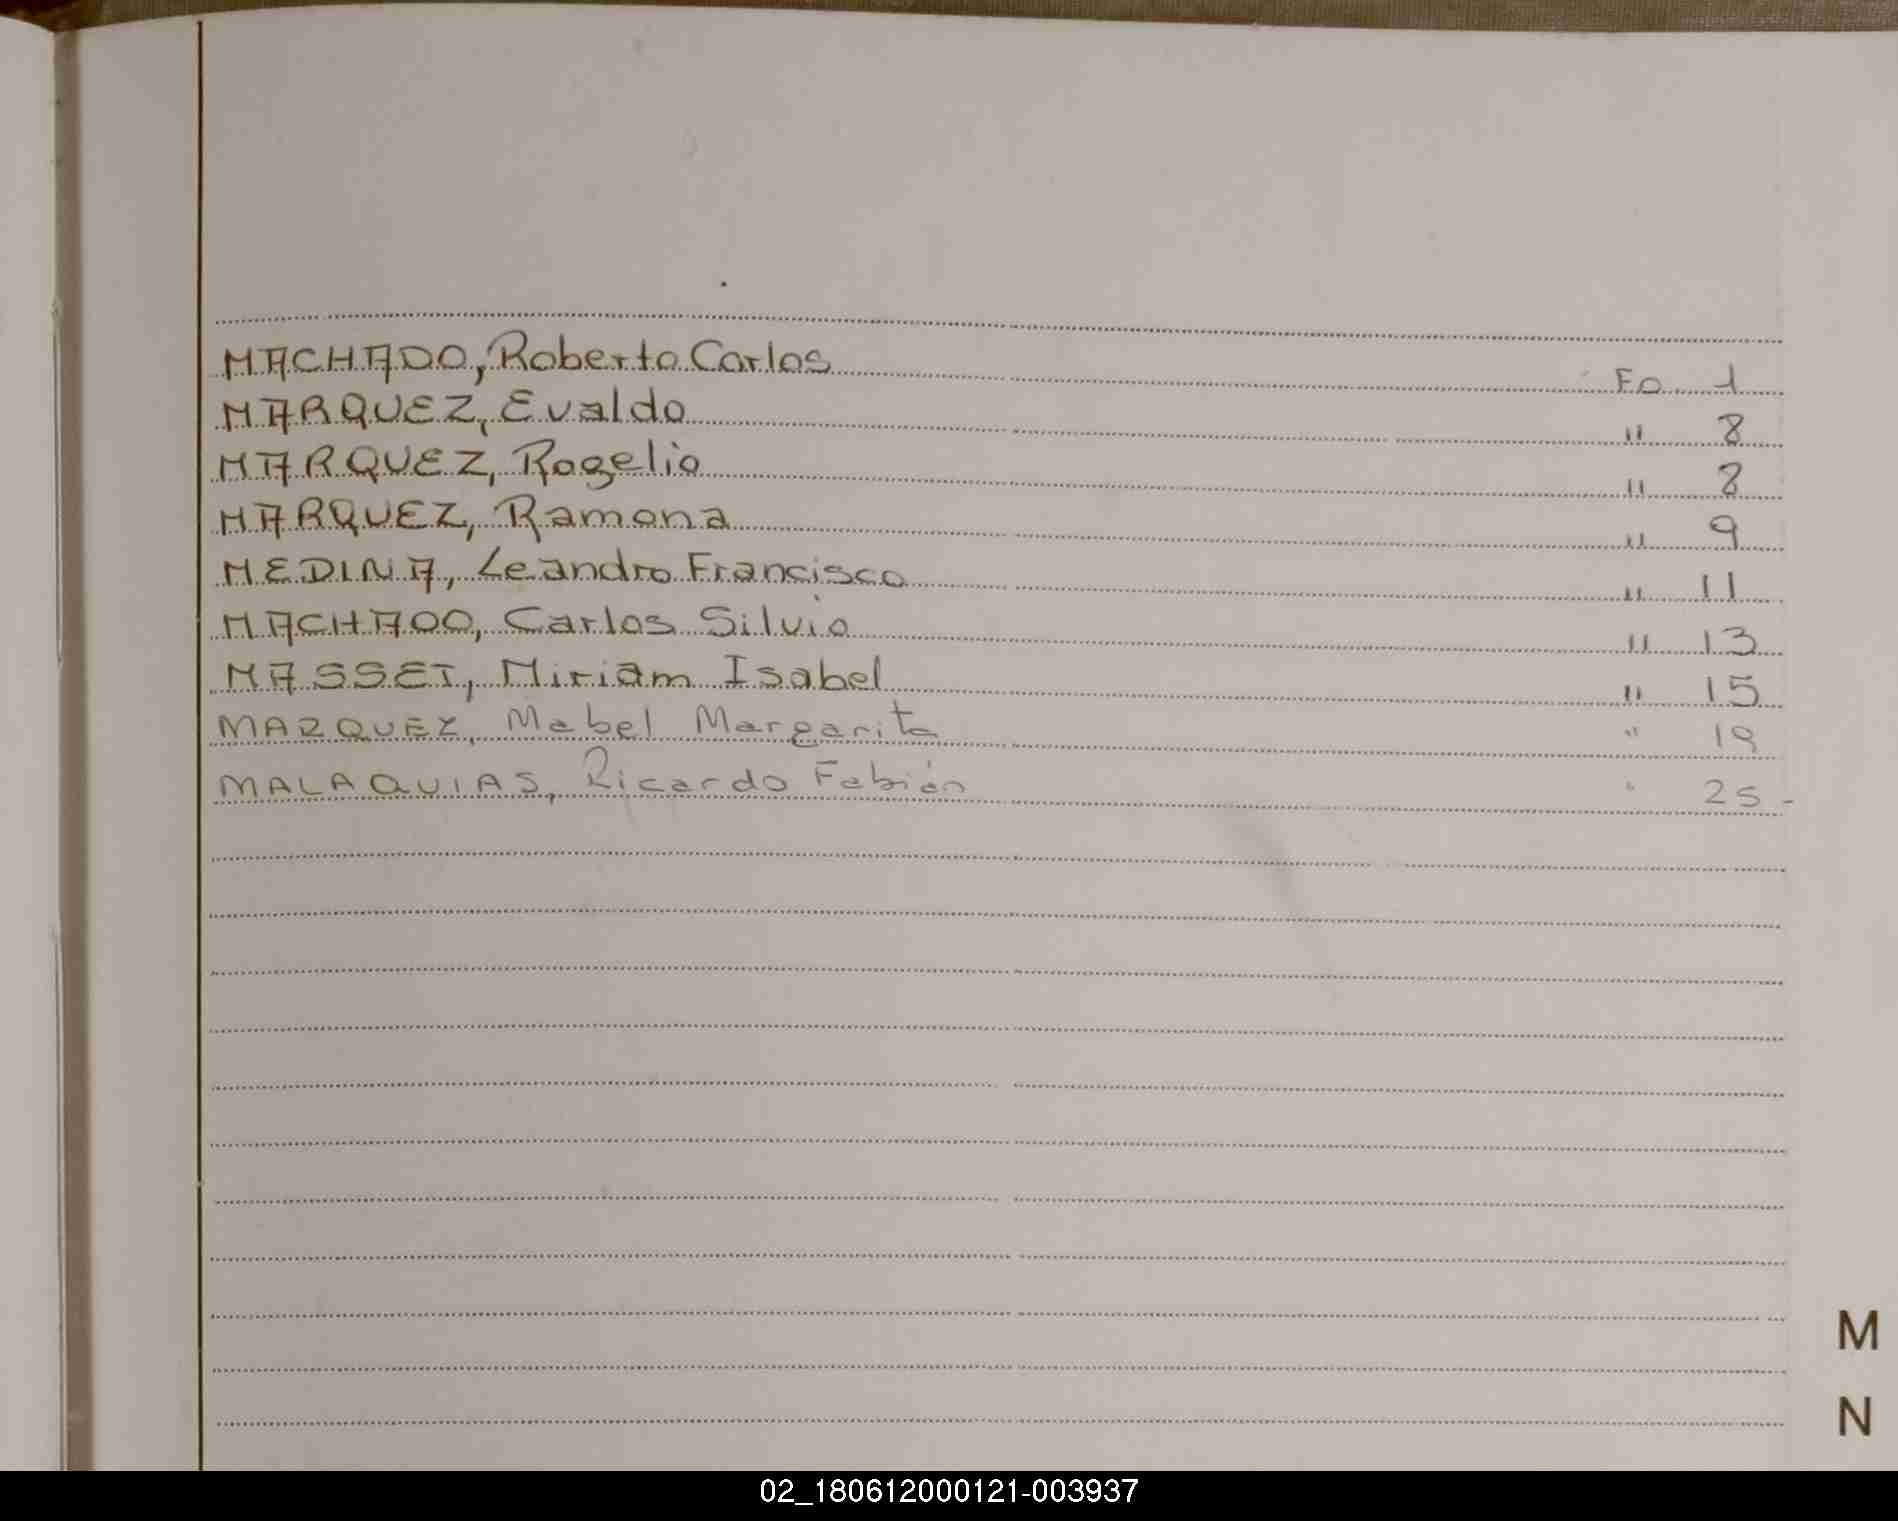 MACHADO, Roberto Carlos Fo 1
MARQUEZ, Evaldo " 8
MARQUEZ, Rogelio " 8
MARQUEZ, Ramona " 9
MEDINA, Leandro Francisco " 11
MACHADO, Carlos Silvio " 13
MASSET, Miriam Isabel " 15
MARQUEZ, Mabel Margarita " 19
MALAQUIAS, Ricardo Fabián " 25-
M
N
02_180612000121-003937